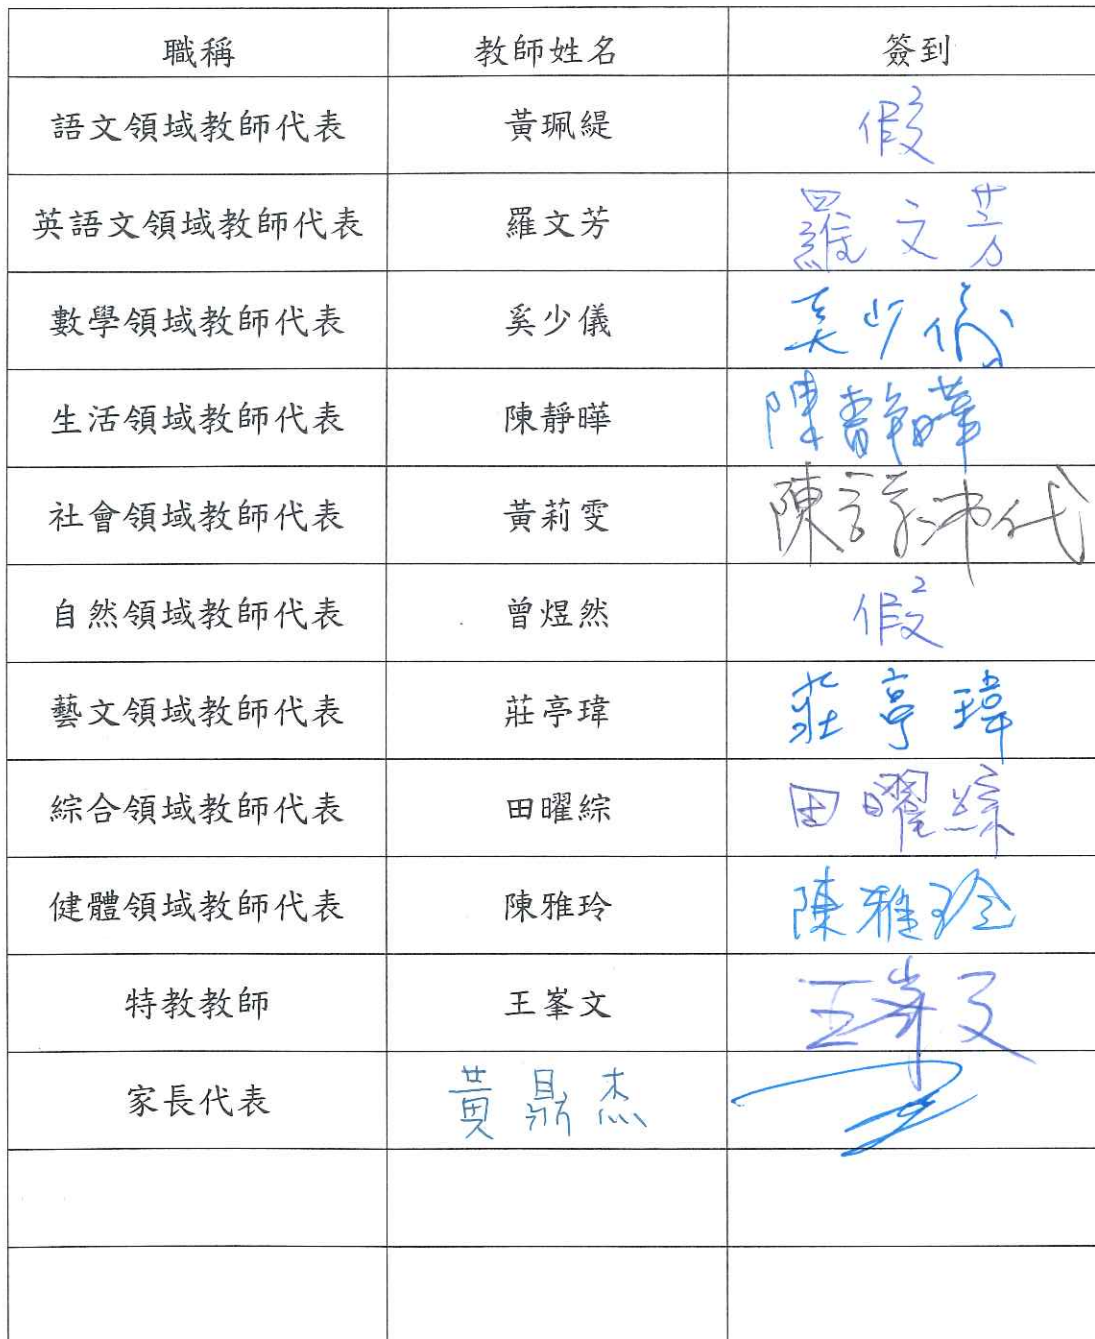 職稱 教師姓名 簽到
語文領域教師代表 黃珮緹 假
英語文領域教師代表 羅文芳 羅文芳
數學領域教師代表 奚少儀 奚少儀
生活領域教師代表 陳靜曄 陳靜曄
社會領域教師代表 黃莉雯 陳 代
自然領域教師代表 曾煜然 假2
藝文領域教師代表 莊亭瑋 莊亭瑋
綜合領域教師代表 田曜綜 田曜綜
健體領域教師代表 陳雅玲 陳雅玲
特教教師 王峯文 王峯文
家長代表 黃鼎杰